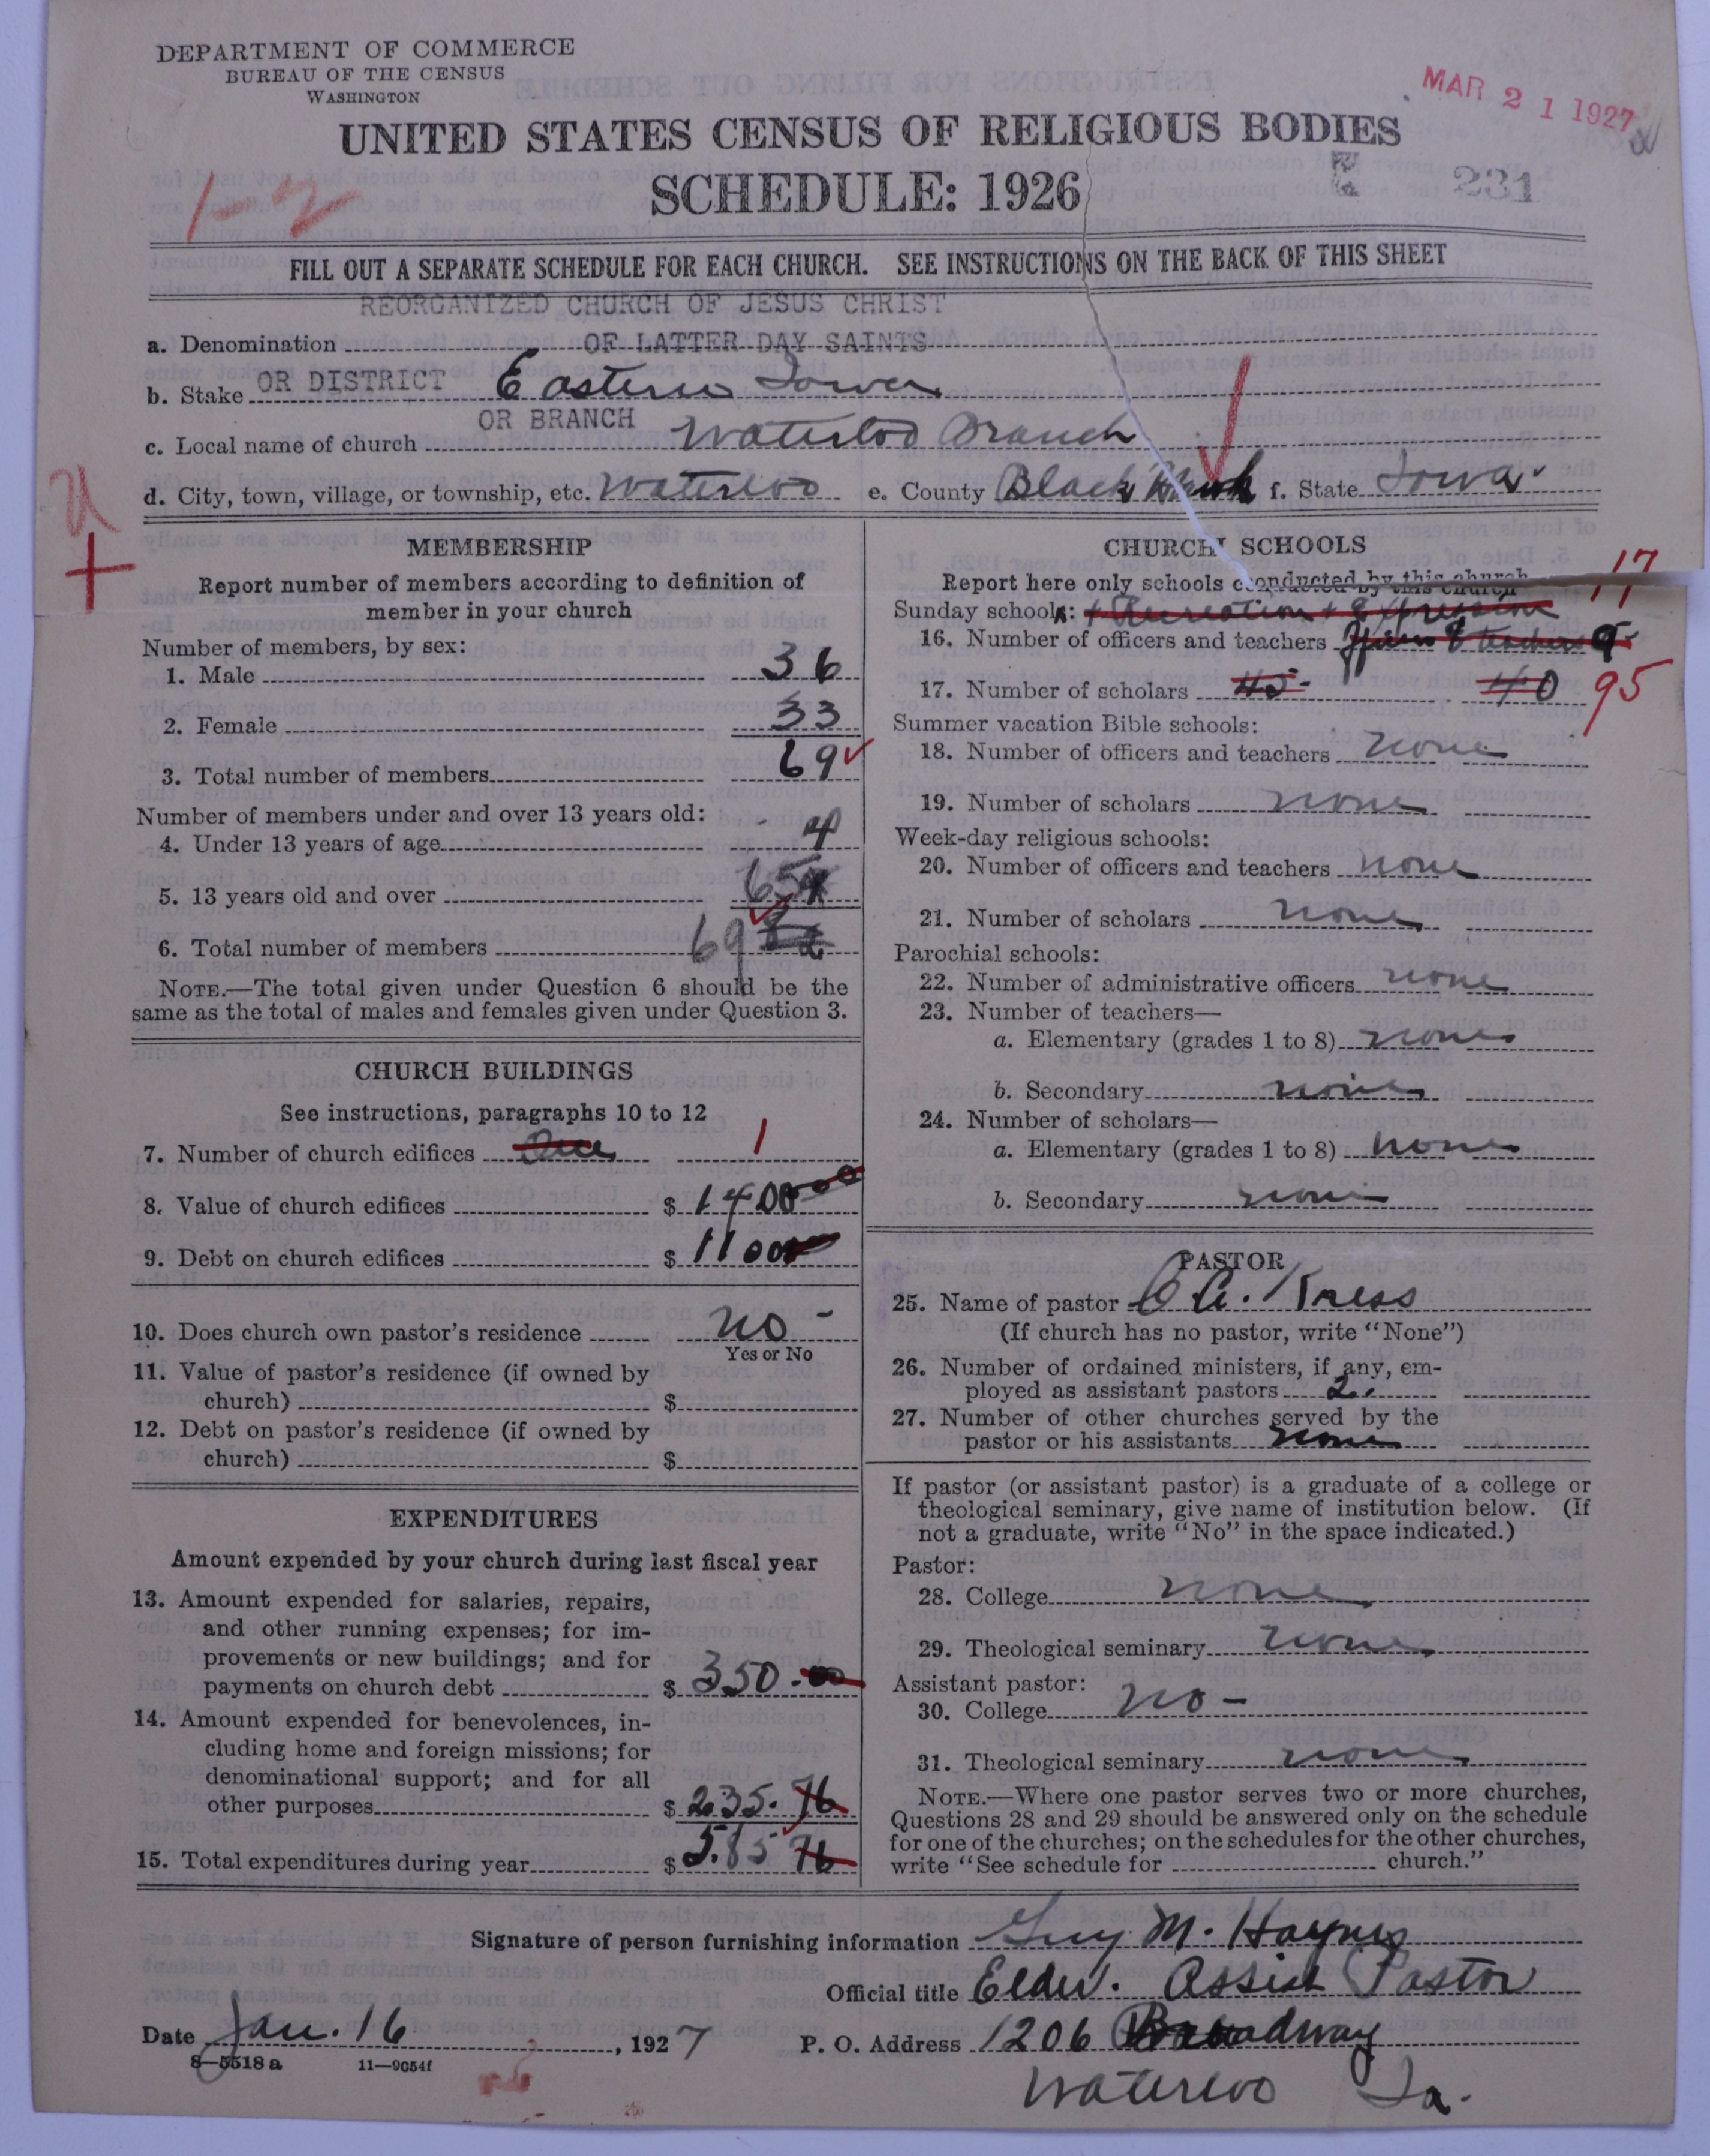 DEPARTMENT OF COMMERCE
BUREAU OF THE CENSUS
WASHINGTON
MAR 21 1927
UNITED STATES CENSUS OF RELIGIOUS BODIES
SCHEDULE: 1926
1-2
231
FILL OUT A SEPARATE SCHEDULE FOR EACH CHURCH. SEE INSTRUCTIONS ON THE BACK OF THIS SHEET
REORGANIZED CHURCH OF JESUS CHRIST
a. Denomination OF LATTER DAY SAINTS
b. Stake OR DISTRICT Eastern Iowa
OR BRANCH
c. Local name of church Waterloo Branch
d. City, town, village, or township, etc. Waterloo e. County Black Hawk f. State Iowa
MEMBERSHIP
Report number of members according to definition of
member in your church
Number of members, by sex:
1. Male 36
2. Female 33
3. Total number of members 69
Number of members under and over 13 years old:
4. Under 13 years of age 4
5. 13 years old and over 65
6. Total number of members 69
NOTE.—The total given under Question 6 should be the
same as the total of males and females given under Question 3.
CHURCH BUILDINGS
See instructions, paragraphs 10 to 12
7. Number of church edifices One 1
8. Value of church edifices $ 1400 00
9. Debt on church edifices $ 1100
10. Does church own pastor's residence No -
Yes or No
11. Value of pastor's residence (if owned by
church) $
12. Debt on pastor's residence (if owned by
church) $
EXPENDITURES
Amount expended by your church during last fiscal year
13. Amount expended for salaries, repairs,
and other running expenses; for im-
provements or new buildings; and for
payments on church debt $ 350.00
14. Amount expended for benevolences, in-
cluding home and foreign missions; for
denominational support; and for all
other purposes $ 235.76
15. Total expenditures during year $ 585 76
CHURCH SCHOOLS
Report here only schools conducted by this church
17
Sunday schools: + Recreation + Expression
16. Number of officers and teachers Officers & teachers 9
17. Number of scholars 45 - 40 95
Summer vacation Bible schools:
18. Number of officers and teachers none
19. Number of scholars none
Week-day religious schools:
20. Number of officers and teachers none
21. Number of scholars none
Parochial schools:
22. Number of administrative officers none
23. Number of teachers—
a. Elementary (grades 1 to 8) none
b. Secondary none
24. Number of scholars—
a. Elementary (grades 1 to 8) none
b. Secondary none
PASTOR
25. Name of pastor C.A. Kress
(If church has no pastor, write "None")
26. Number of ordained ministers, if any, em-
ployed as assistant pastors 2.
27. Number of other churches served by the
pastor or his assistants none
If pastor (or assistant pastor) is a graduate of a college or
theological seminary, give name of institution below. (If
not a graduate, write "No" in the space indicated.)
Pastor:
28. College none
29. Theological seminary none
Assistant pastor:
30. College No -
31. Theological seminary none
NOTE.—Where one pastor serves two or more churches,
Questions 28 and 29 should be answered only on the schedule
for one of the churches; on the schedules for the other churches,
write "See schedule for church."
Signature of person furnishing information Guy M. Haynes
Official title Elder. Assist Pastor
Date Jan. 16, 1927 P. O. Address 1206 Broadway
8—5518 a 11—9054f
Waterloo Ia.